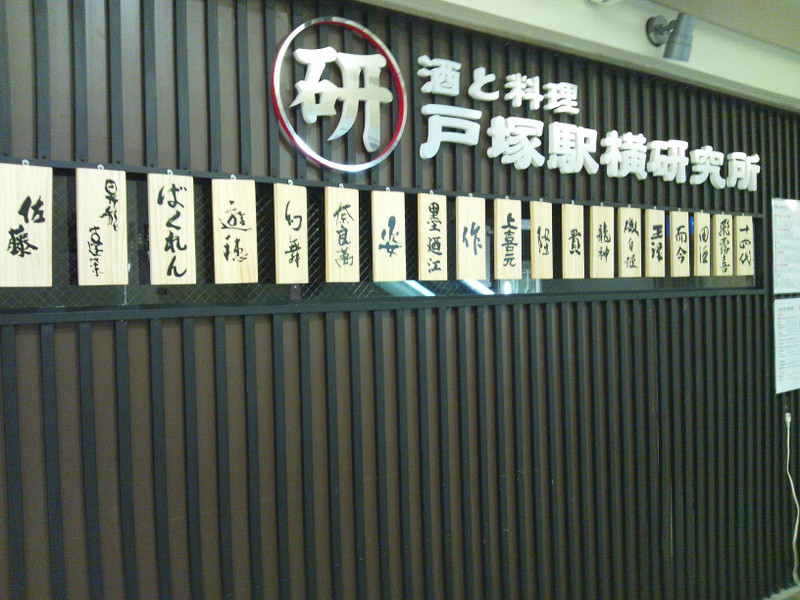 研
酒と料理
戸塚駅横研究所
十四代
飛露喜
田酒
而今
王祿
磯自慢
龍神
貴
上喜元
作
墨廼江
姿
奈良萬
幻舞
遊穂
ばくれん
佐藤